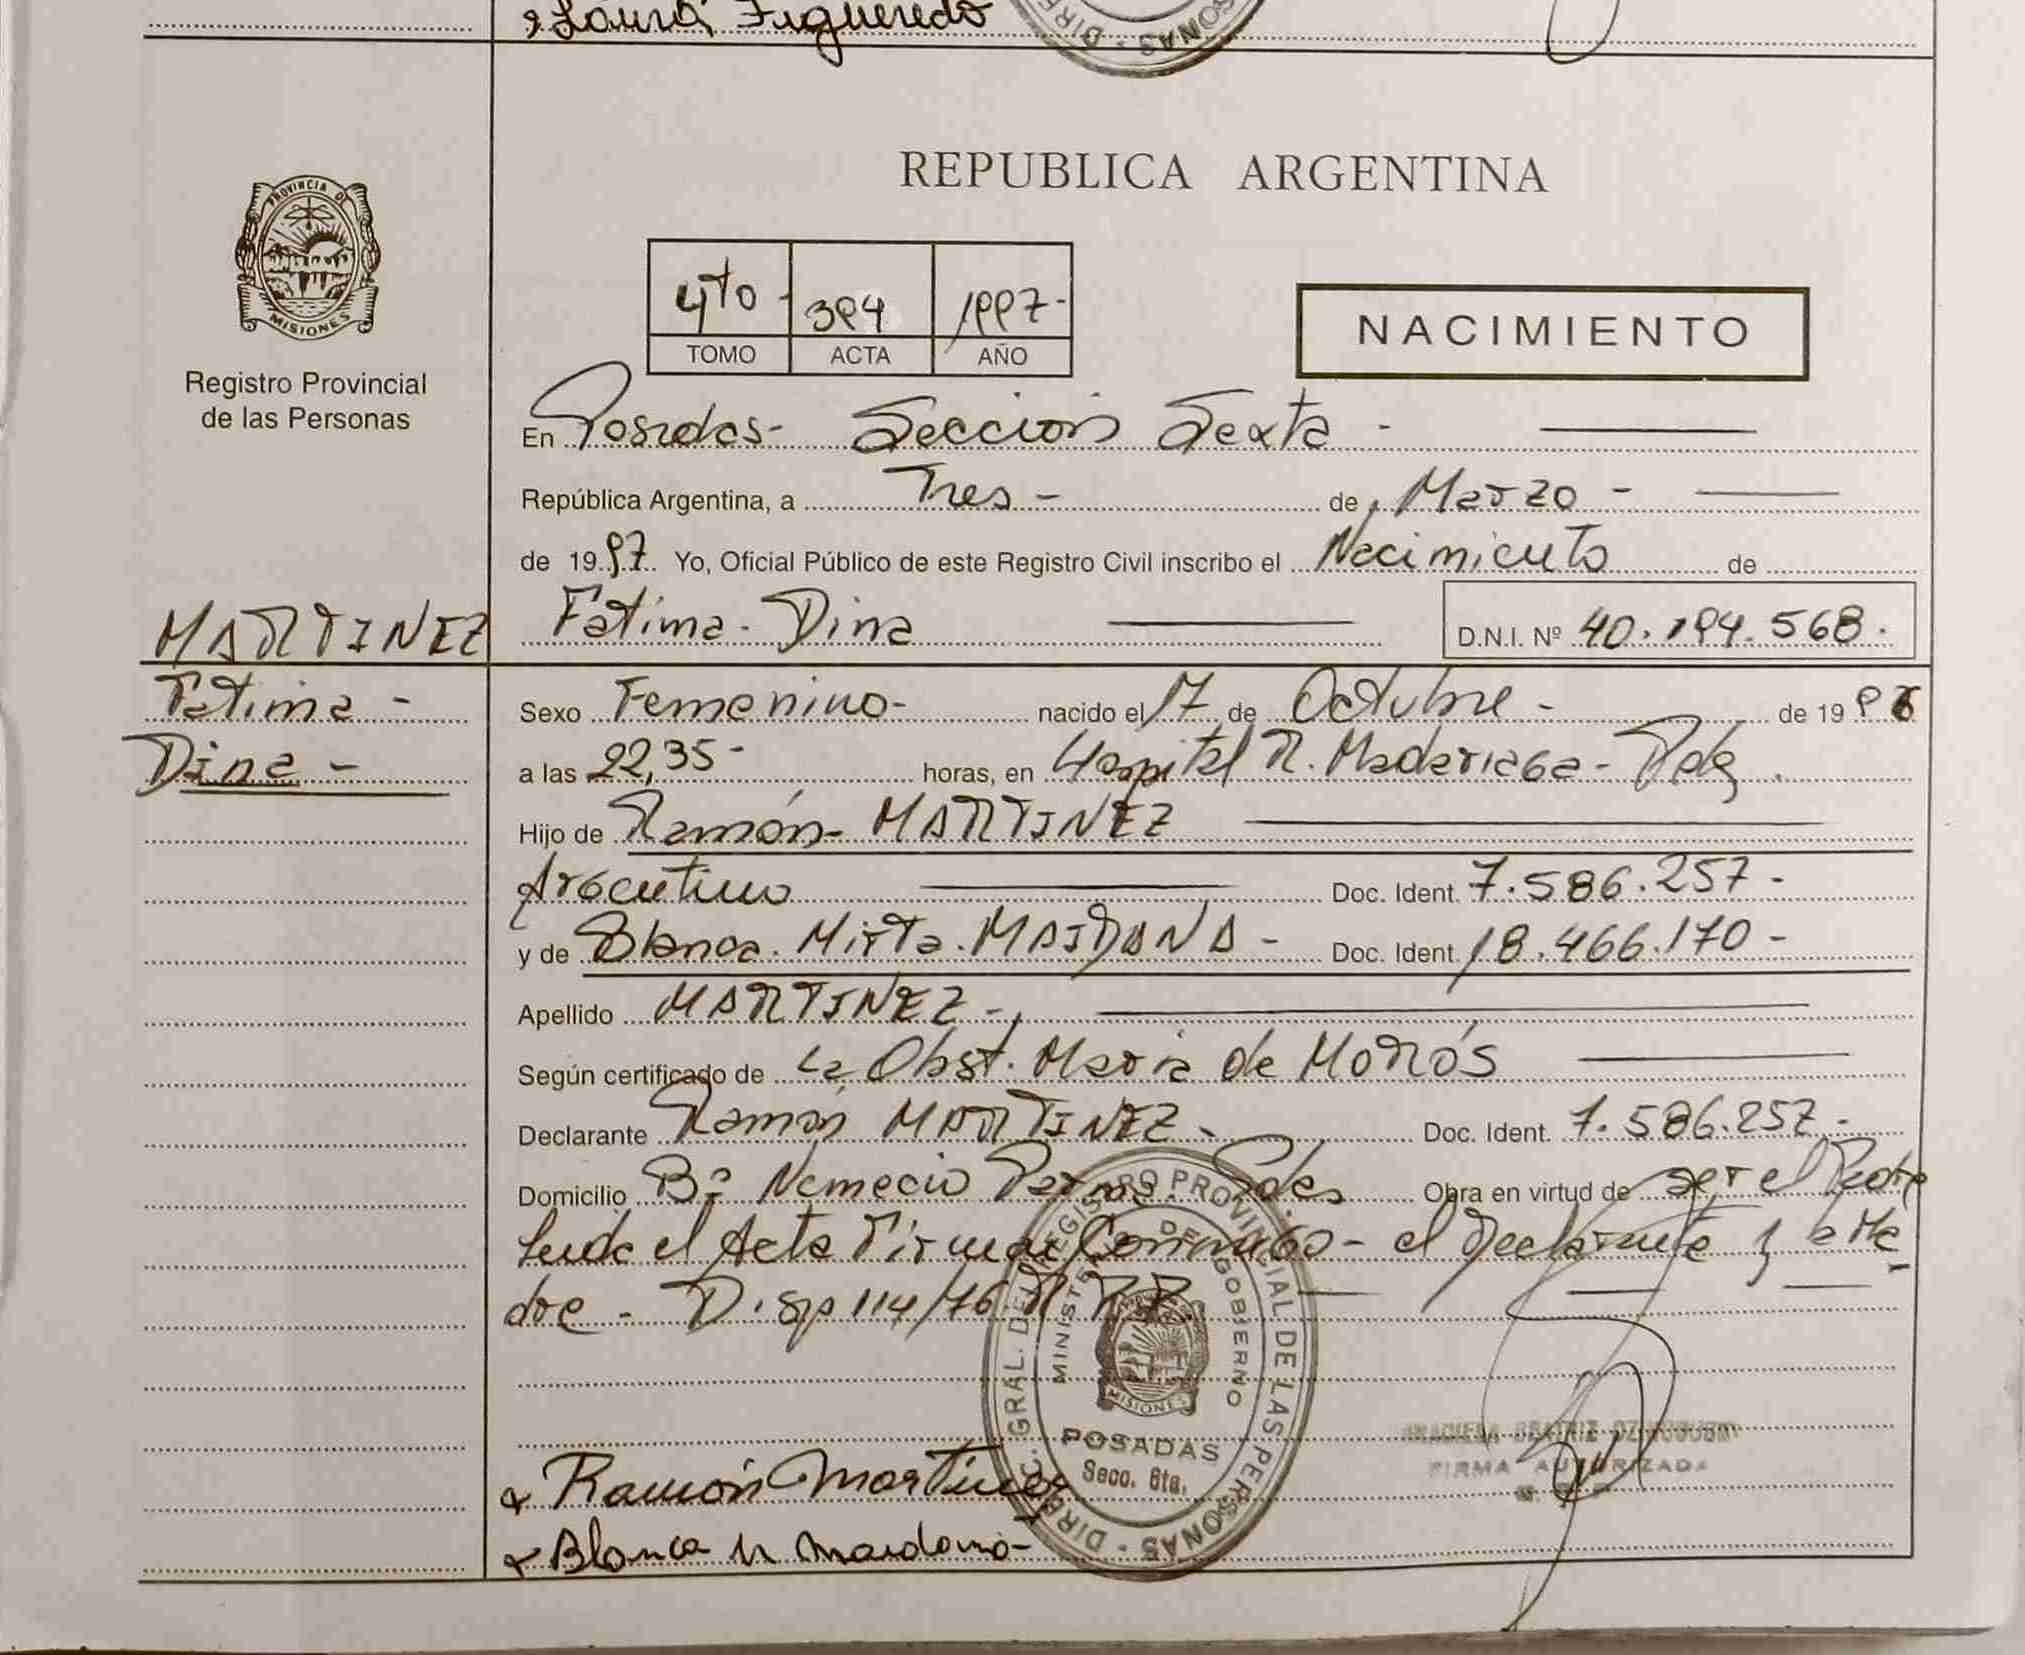 Laura Figueredo
PROVINCIA DE
MISIONES
Registro Provincial
de las Personas
REPUBLICA ARGENTINA
4to - 394 1997-
TOMO ACTA AÑO
NACIMIENTO
En Posadas- Sección Sexta -
República Argentina, a Tres - de Marzo -
de 1997. Yo, Oficial Público de este Registro Civil inscribo el Nacimiento de
MARTINEZ Fatima - Dina D.N.I. Nº 40.194.568.
Fatima -
Dina -
Sexo Femenino- nacido el 17 de Octubre - de 1996
a las 22,35- horas, en Hospital R. Madariaga-
Hijo de Ramón- MARTINEZ
Argentino Doc. Ident. 7.586.257-
y de Blanca. Mirta. MAIDANA - Doc. Ident. 18.466.170-
Apellido MARTINEZ -
Según certificado de La Obst. Maria de
Declarante Ramón MARTINEZ - Doc. Ident. 7.586.257-
Domicilio Bº Nemecio Parma. Pdas Obra en virtud de ser el Padre
Leida el Acta Firman Conmigo - el Declarante y la Ma
dre - Disp 114/76
DIREC. GRAL. DEL REGISTRO PROVINCIAL DE LAS PERSONAS
MINISTERIO DE GOBIERNO
MISIONES
POSADAS
Secc. 6ta.
FIRMA AUTORIZADA
Ramón Martinez
Blanca M Maidana